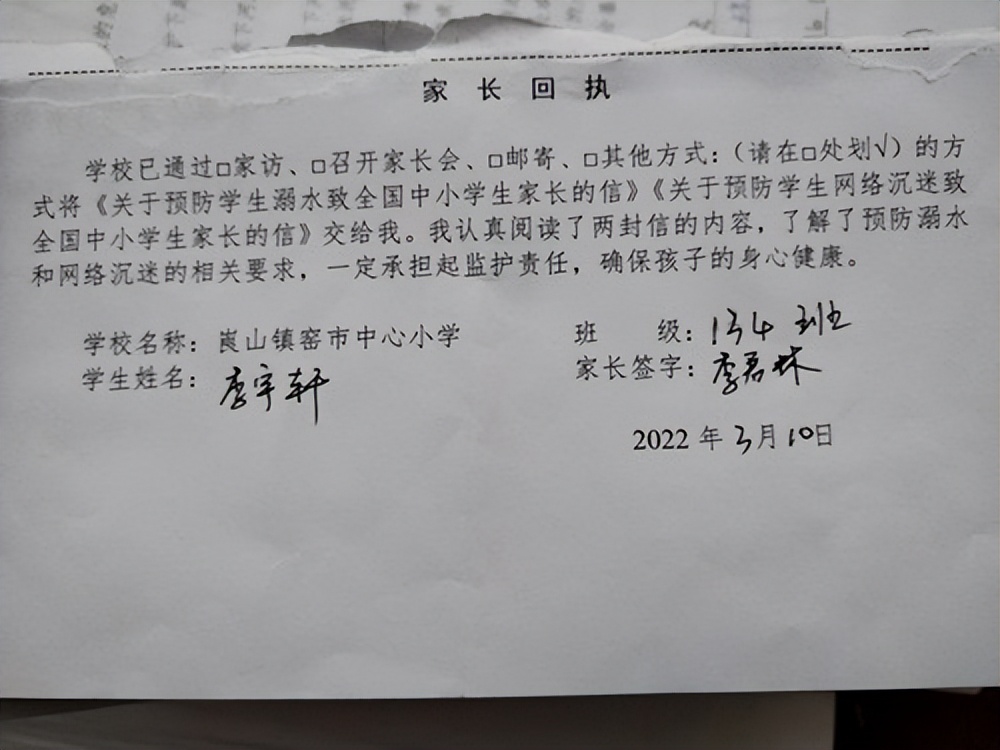 家长回执
学校已通过□家访、□召开家长会、□邮寄、□其他方式:(请在□处划√)的方
式将《关于预防学生溺水致全国中小学生家长的信》《关于预防学生网络沉迷致
全国中小学生家长的信》交给我。我认真阅读了两封信的内容,了解了预防溺水
和网络沉迷的相关要求,一定承担起监护责任,确保孩子的身心健康。
学校名称:崀山镇窑市中心小学 班 级:134班
学生姓名:李宇轩 家长签字:李君林
2022年3月10日